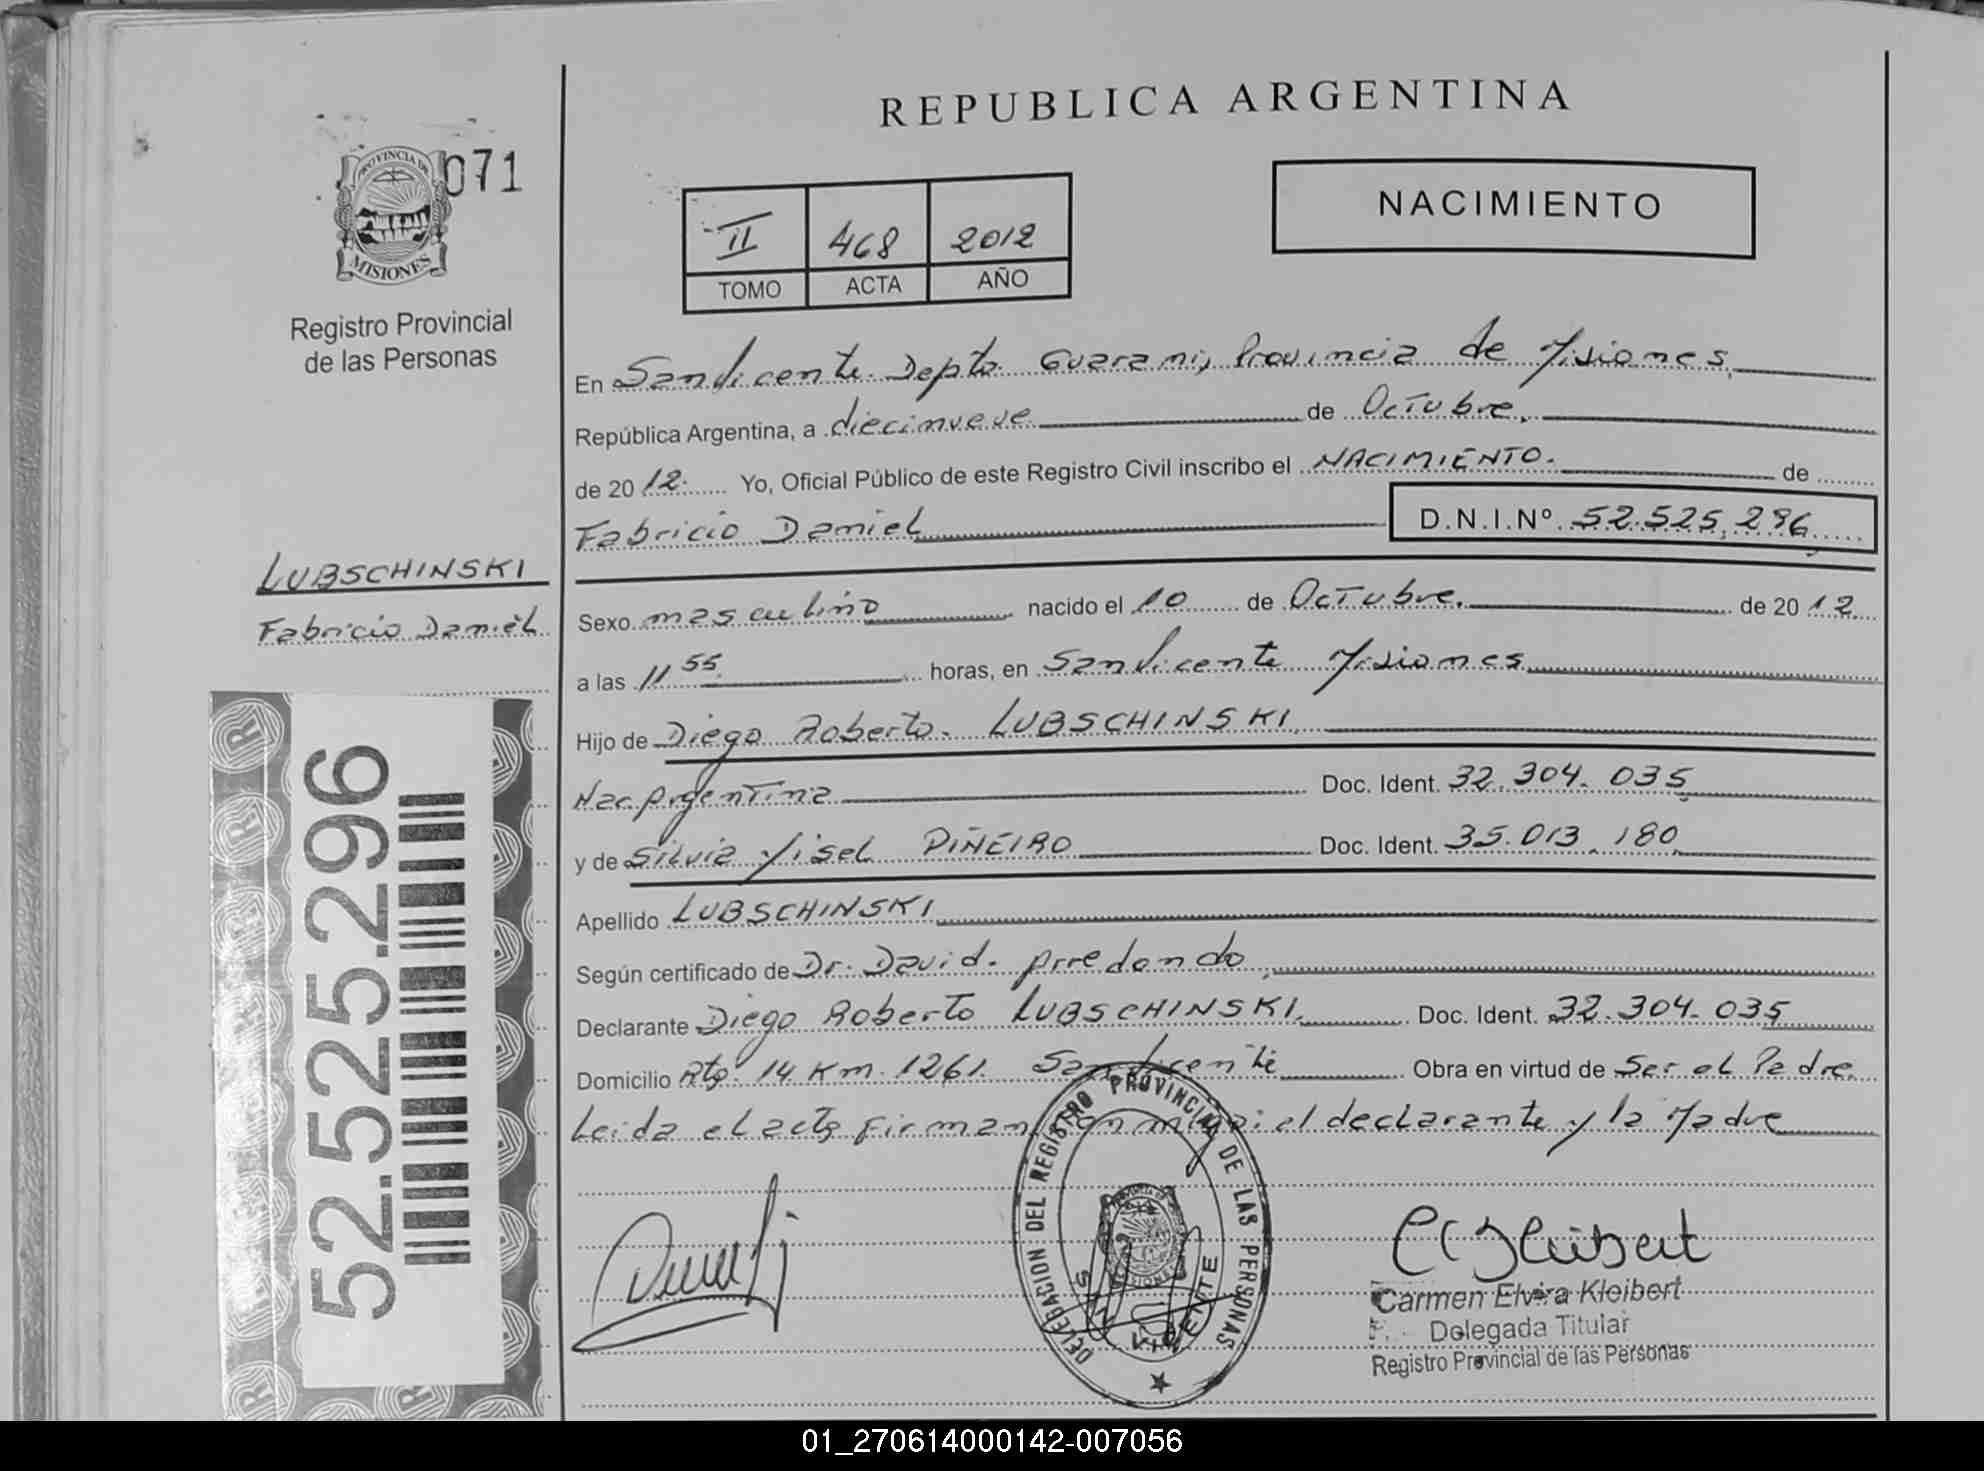 REPUBLICA ARGENTINA
071
PROVINCIA DE
MISIONES
Registro Provincial
de las Personas
NACIMIENTO
II 468 2012
TOMO ACTA AÑO
En San Vicente Depto Guarani, Provincia de Misiones
República Argentina, a diecinueve de Octubre.
de 2012. Yo, Oficial Público de este Registro Civil inscribo el NACIMIENTO. de
Fabricio Daniel D.N.I.Nº 52.525.296
LUBSCHINSKI
Fabricio Daniel
Sexo masculino nacido el 10 de Octubre. de 2012
a las 11 55 horas, en San Vicente Misiones
Hijo de Diego Roberto. LUBSCHINSKI
Nac Argentina Doc. Ident. 32.304.035
y de Silvia Yisel PIÑEIRO Doc. Ident. 35.013.180
Apellido LUBSCHINSKI
Según certificado de Dr. David. Arredondo
Declarante Diego Roberto LUBSCHINSKI. Doc. Ident. 32.304.035
Domicilio Rta. 14 Km. 1261. San Vicente Obra en virtud de Ser el Padre
Leida el acta firman con migo: el declarante y la Madre
52.525.296
DELEGACION DEL REGISTRO PROVINCIAL DE LAS PERSONAS
SAN VICENTE
Carmen Elvira Kleibert
Delegada Titular
Registro Provincial de las Personas
01_270614000142-007056